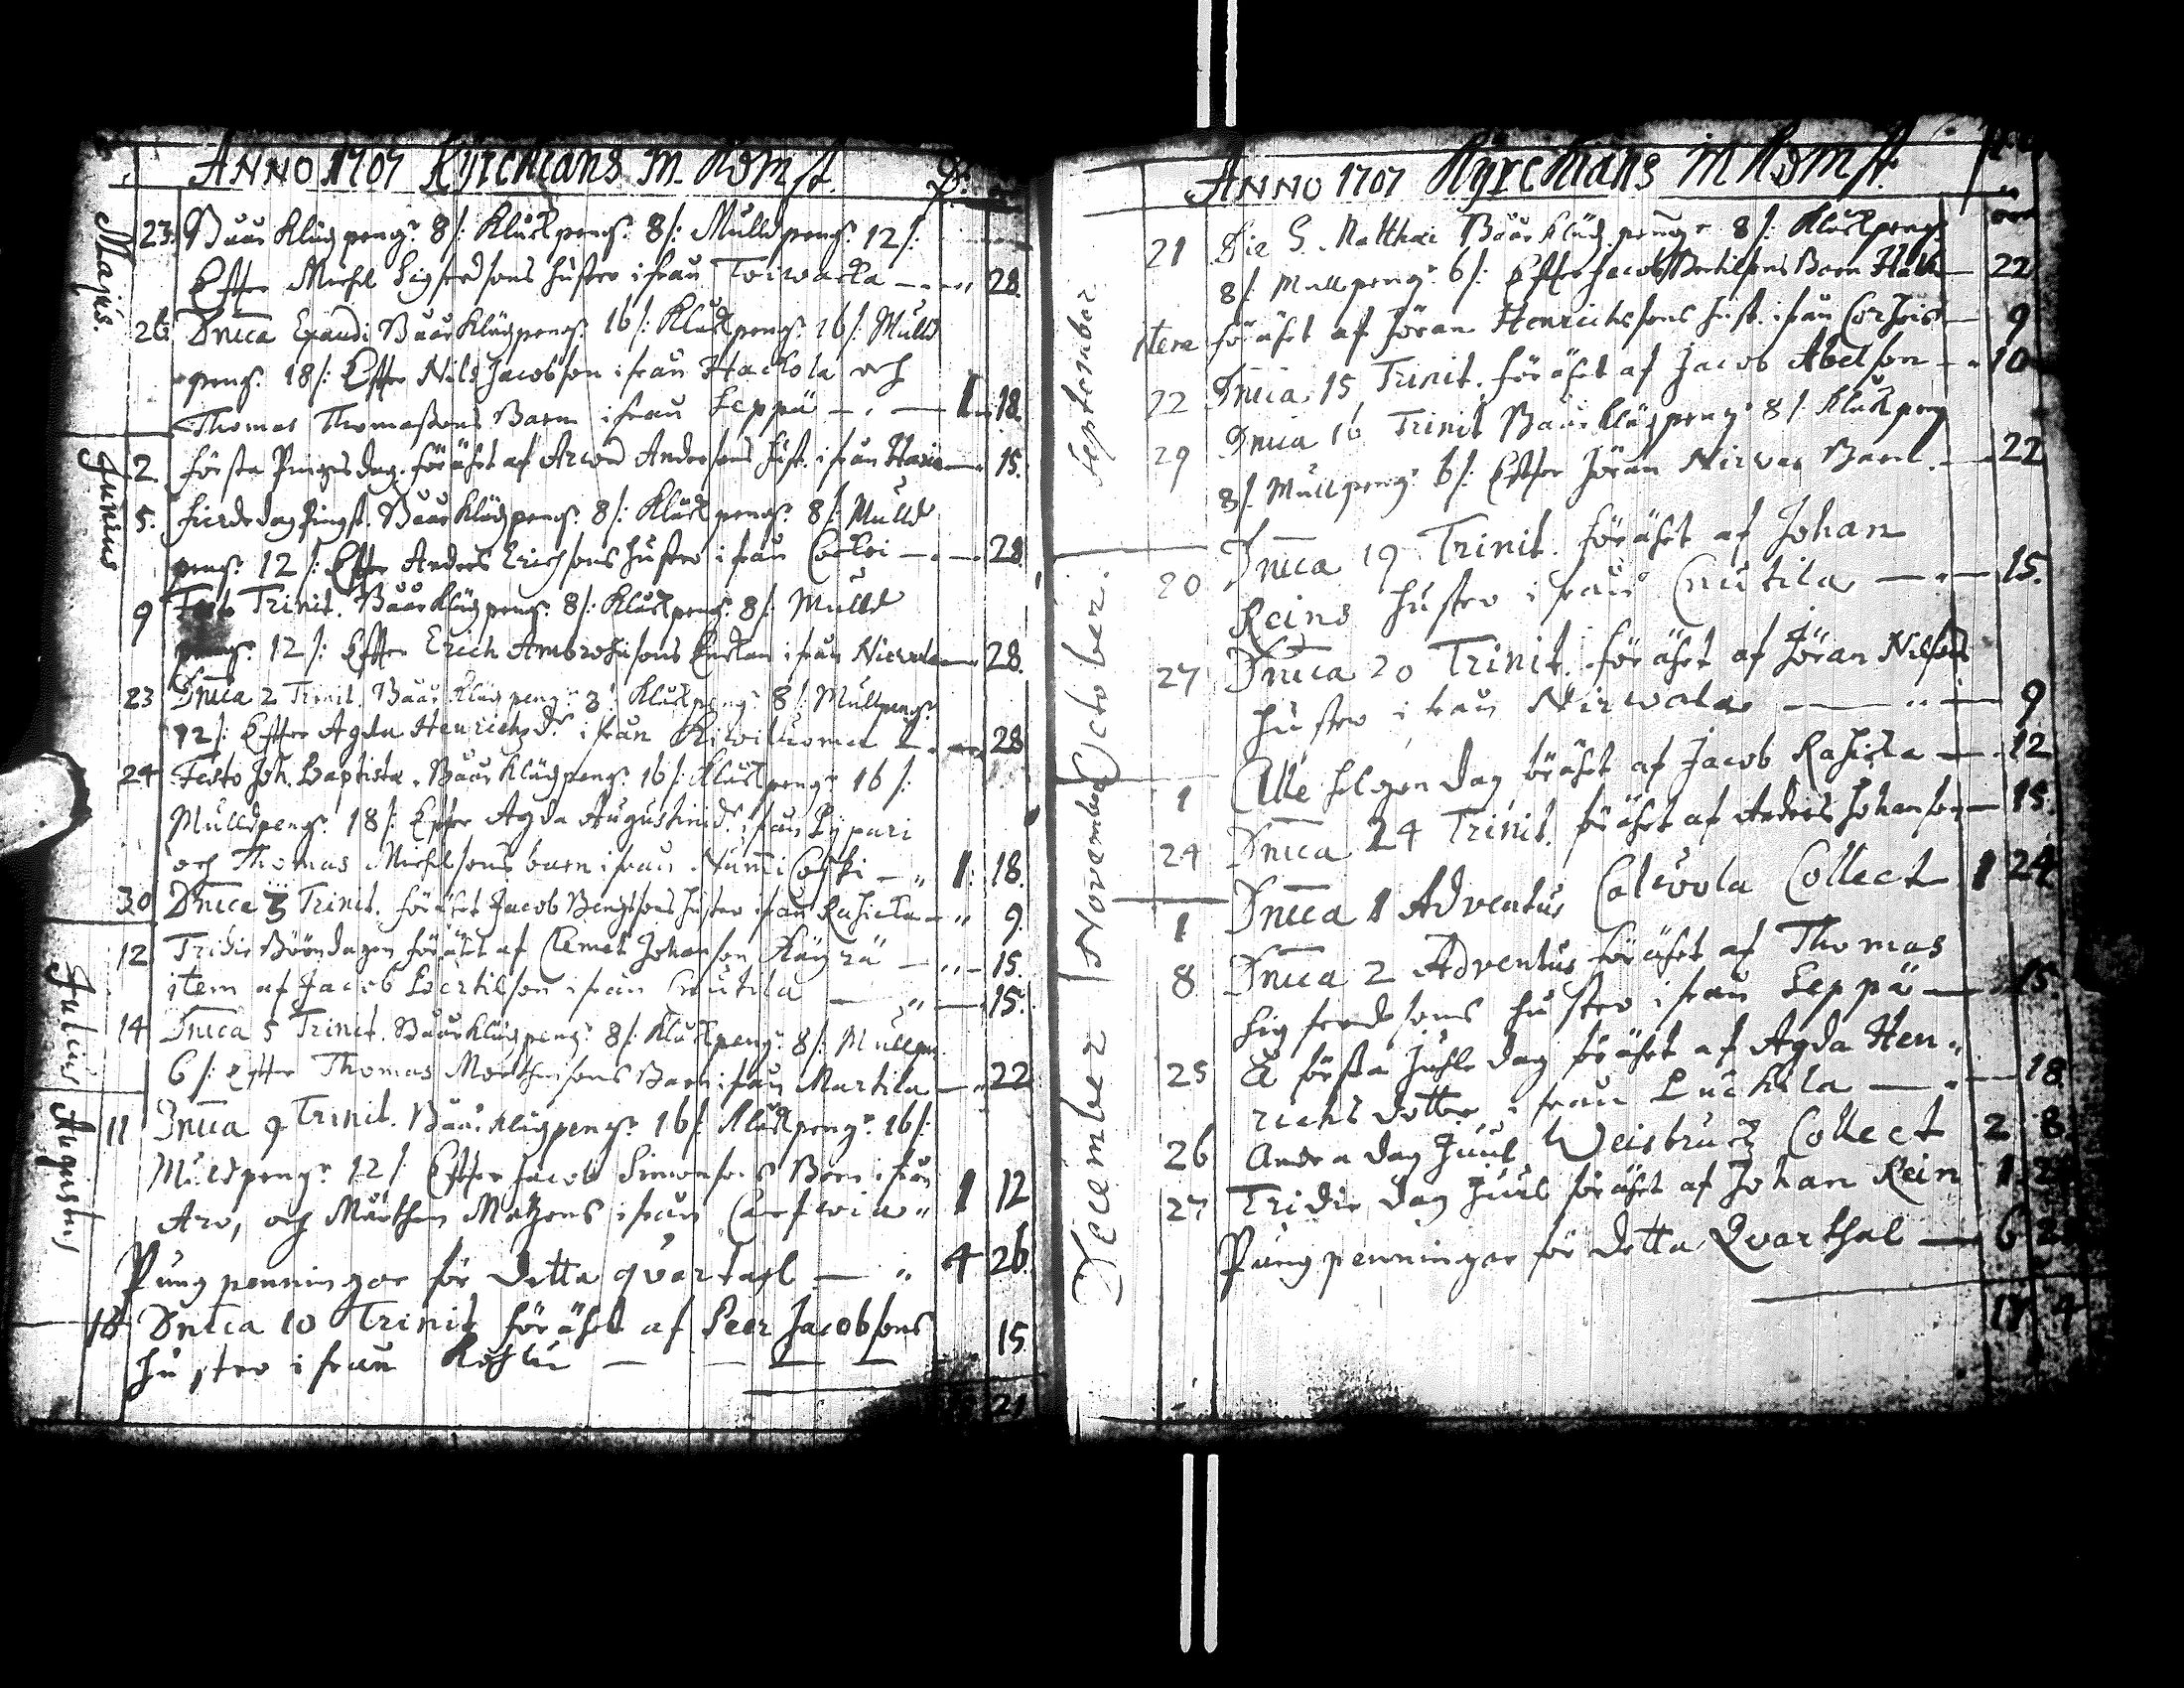 ANNO 1707 Kyrckians Inkomst.
Majus.
23. Båår Kläg peng: 8 /: Klåck peng: 8 /: Mulld peng: 12 /:
Effter Michel Sigfredsons hustro ifrån Toiwacka — 28.
26. Dnica Exaudi Båår Klägpeng: 16 /: Klåckpeng: 16 /: Mulld
peng: 18 /: Effter Nils Jacobson ifrån Hackola och
Thomas Thomassons Barn ifrån Seppä — 1 18.
Junius
2. första Pingesdag. föräht af Arwed Andersons hust. ifrån — 15.
5. fierde dag Pingst. Båår Klägpeng: 8 /: Klåckpeng: 8 /: Mulld
peng: 12 /: Effter Anders Erichsons hustro ifrån — 28
9 Festo Trinit. Båår Klägpeng: 8 /: Klåckpeng: 8 /: Mulld
peng: 12 /: Effter Erich Ambrosiusons ifrån — 28.
23 Dnica 2 Trinit. Båår Klägpeng: 8 /: Klåckpeng: 8 /: Mullpeng:
12 /: Effter Agda Henrichsd: ifrån — 28
24 Festo Joh. Baptistæ. Båår Klägpeng: 16 /: Klåckpeng: 16 /:
Mulldpeng: 18 /: Effter Agda Augustinid: ifrån Lypari
och Thomas Michelsons barn ifrån — 1: 18.
30 Dnica 3 Trinit. föräht Jacob Bengtsons hustro ifrån Rahicka — 9.
Julius
12 Tridie Böndagen föräht af Clemet Johanson Käyrä — 15.
item af Jacob Bertilson ifrån Cnutila — 15.
14 Dnica 5 Trinit. Båår Klägpeng: 8 /: Klåckpeng: 8 /: Mullpe
6 /: Effter Thomas Morthensons Barn ifrån Martila — 22
Augustus
11 Dnica 9 Trinit. Båår Klägpeng: 16 /: Klåckpeng: 16 /:
Muldpeng: 12 /: Effter Jacob Simonsons Barn ifrån
Aro, och Mårthen Matzons ifrån 1 12
Pung penningar för detta qvartahl — 4 26.
18 Dnica 10 Trinit föräht af Peer Jacobsons
hustro ifrån — 15
21
ANNO 1707 Kyrckians Inkomst.
September
21 Die S. Matthæi Båår Kläg. peng: 8 /: Klåckpeng:
8 /: Mullpeng: 6 /: Effter Jacob Bertilsons Barn — 22
item föräht af Jöran Henrichssons hust. ifrån — 9
22 Dnica 15 Trinit. föräht af Jacob Abelson — 10
29 Dnica 16 Trinit Båår Klägpeng: 8 /: Klåckpeng
8 /: Mullpeng: 6 /: Effter Jöran Nirvas Barn. — 22
October.
20 Dnica 19 Trinit. föräht af Johan
Reins hustro ifrån Cnutila — 15.
27 Dnica 20 Trinit. föräht af Jöran Nilsons
hustro ifrån Nirwala — 9
November
1 Alle helgon dag föräht af Jacob Rahicka — 12
24 Dnica 24 Trinit. föräht af Anders Johanson — 15.
December
1 Dnica 1 Adventus Calwola Collect 1 24
8 Dnica 2 Adventus föräht af Thomas
Sigfredsons hustro ifrån Seppä — 15.
25 å första Juhle dag föräht af Agda Hen-
richs dotter ifrån — 18
26 Andra dag Juul Weisbruck Collect 2 8
27 Tridie dag Juul föräht af Johan Rein 1.
Pung penningar för detta Qvarthal — 6
17 4